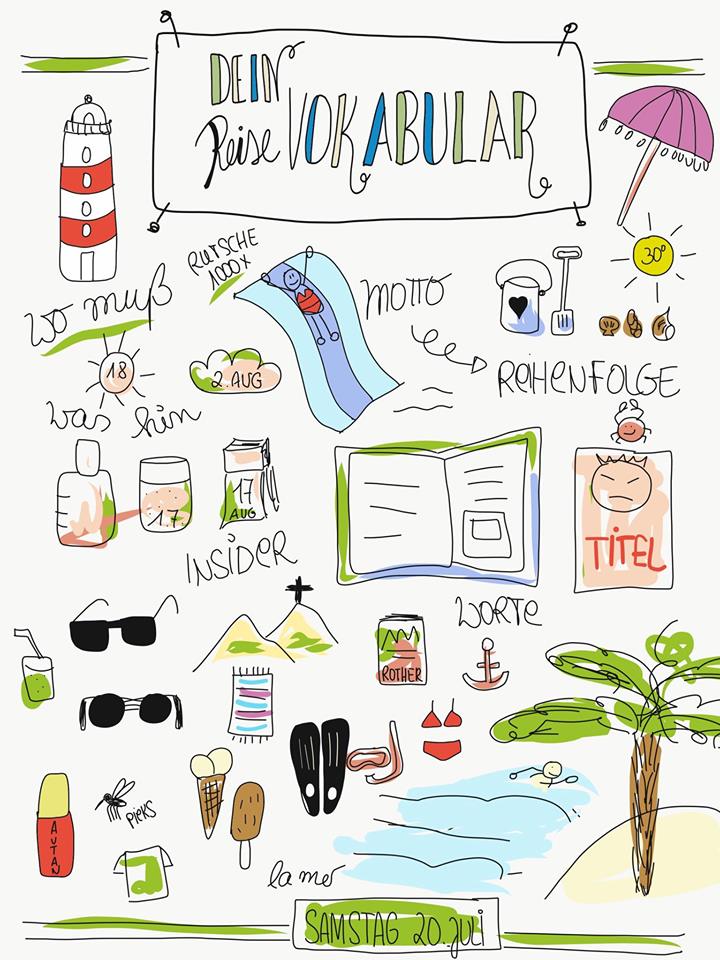 DEIN
Reise VOKABULAR
RUTSCHE
1000x
30°
MOTTO
wo muß
18
2. AUG
REIHENFOLGE
was hin
17
AUG
1.7.
TITEL
INSIDER
WORTE
ROTHER
AUTAN
PIEKS
la mer
SAMSTAG 20. Juli